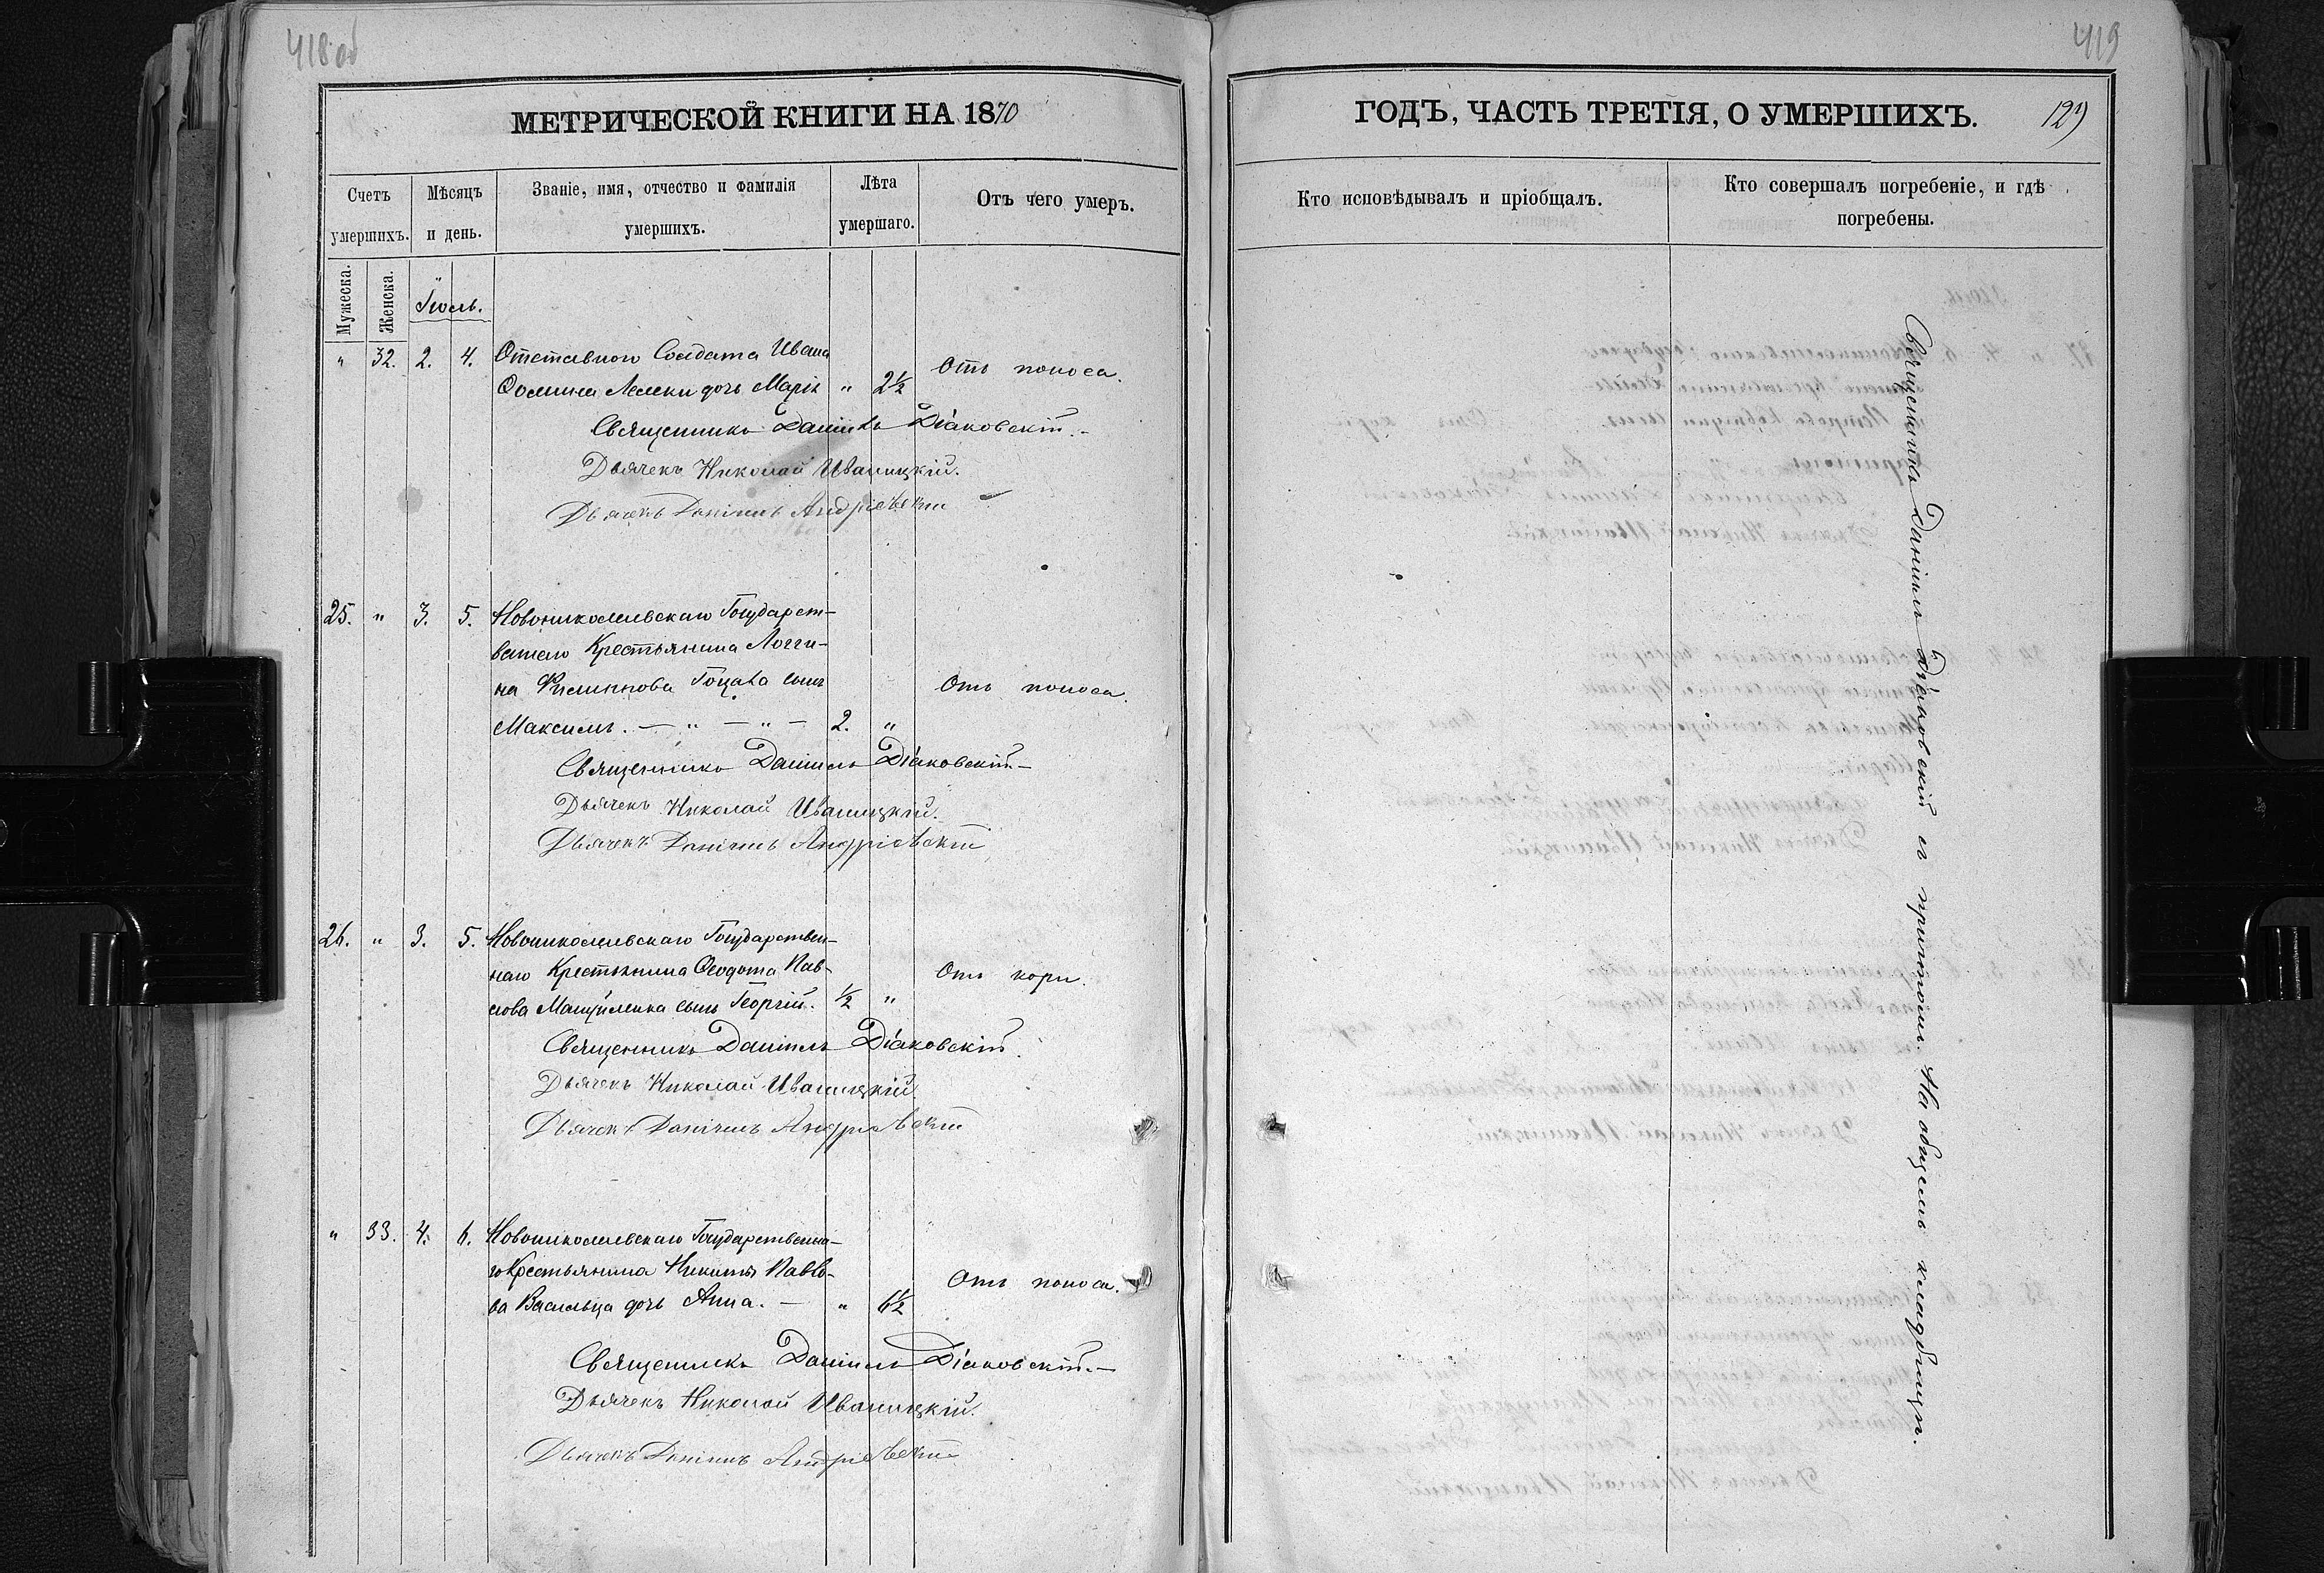 418 об
419
МЕТРИЧЕСКОЙ КНИГИ НА 1870
ГОДЪ, ЧАСТЬ ТРЕТІЯ, О УМЕРШИХЪ.
Счетъ умершихъ.
Мѣсяцъ и день.
Званіе, имя, отчество и фамилія умершихъ.
Лѣта умершаго.
Отъ чего умеръ.
Кто исповѣдывалъ и пріобщалъ.
Кто совершалъ погребеніе, и гдѣ погребены.
Мужеска.
Женска.
Іюль.
" 32. 2. 4. Отставного Солдата Ивана
Ѳомина дочь Марія " 2½ Отъ поноса.
Священникъ Даніилъ Діаковскій.-
Дьячекъ Николай Иваницкій.
Дьячекъ Даніилъ Андріевскій
25. " 3. 5. Новониколаевскаго Государст-
веннаго Крестьянина Логги-
на Филиппова сынъ Отъ поноса.
Максимъ. — " — " — 2. "
Священникъ Даніилъ Діаковскій.-
Дьячекъ Николай Иваницкій.
Дьячекъ Даніилъ Андріевскій
26. " 3. 5. Новониколаевскаго Государствен-
наго Крестьянина Ѳеодота Пав- Отъ кори.
лова сынъ Георгій. ½ "
Священникъ Даніилъ Діаковскій.
Дьячекъ Николай Иваницкій.
Дьячекъ Даніилъ Андріевскій
" 33. 4. 6. Новониколаевскаго Государственна-
го Крестьянина Никиты Павло- Отъ поноса.
ва Васильца дочь Анна. — " 6½
Священникъ Даніилъ Діаковскій.-
Дьячекъ Николай Иваницкій.
Дьячекъ Даніилъ Андріевскій
Священникъ Даніилъ Діаковскій съ причтомъ. На общемъ кладбищѣ.